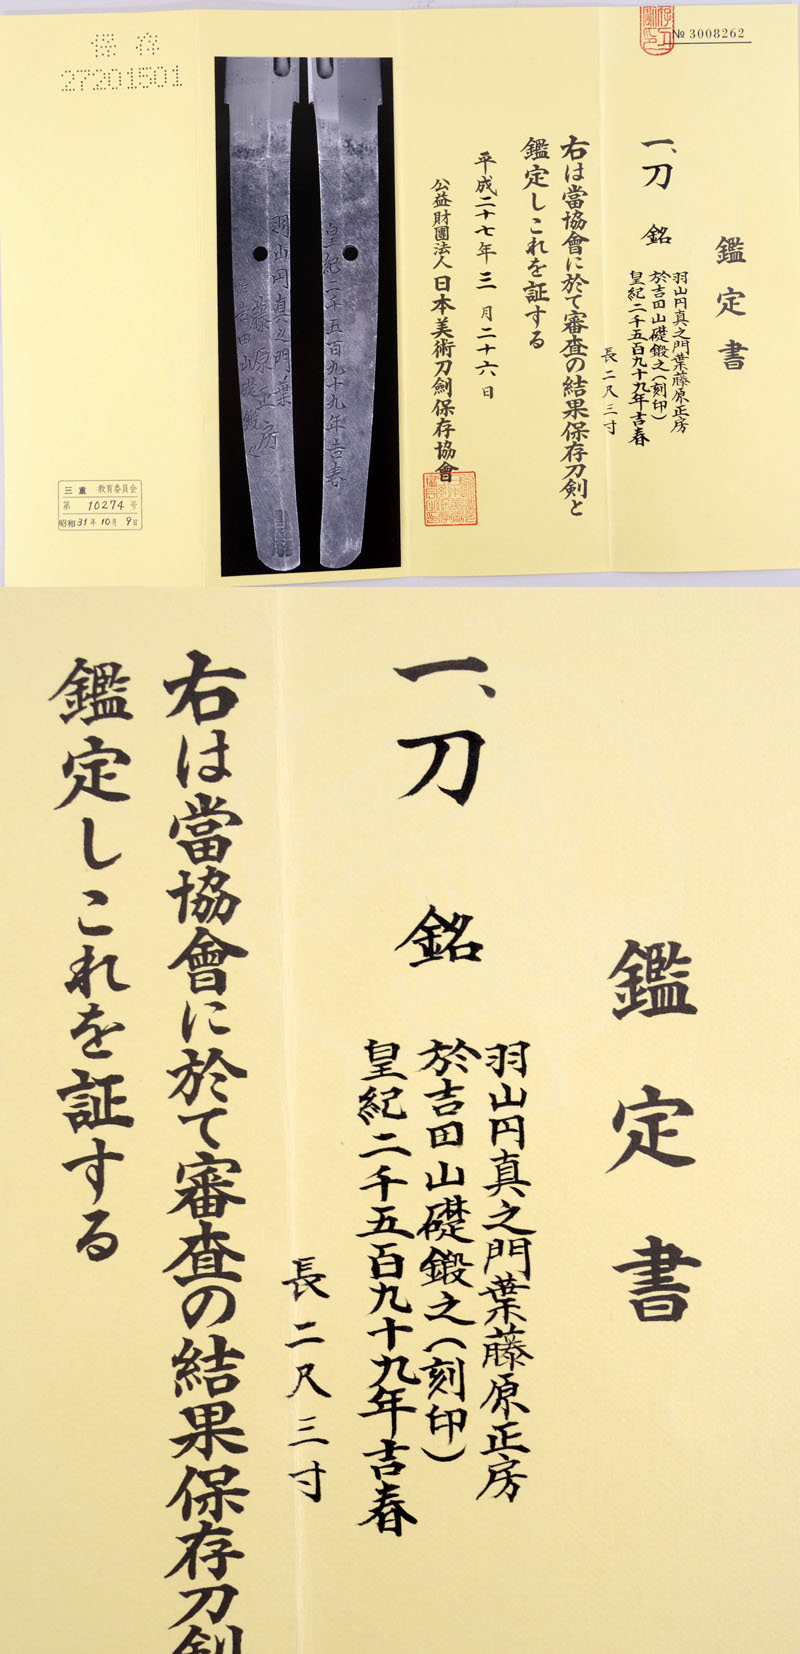 № 3008262
鑑定書
一、刀 銘
羽山円真之門葉藤原正房
於吉田山礎鍛之(刻印)
皇紀二千五百九十九年吉春
長二尺三寸
右は當協會に於て審査の結果保存刀剣と
鑑定しこれを証する
平成二十七年三月二十六日
公益財團法人日本美術刀劍保存協會
皇紀二千五百九十九年吉春
羽山円真之門葉
藤原正房
於吉田山礎鍛之
保存
27201501
三重 教育委員会
第 10274 号
昭和31年10月9日
鑑定書
一、刀 銘
羽山円真之門葉藤原正房
於吉田山礎鍛之(刻印)
皇紀二千五百九十九年吉春
長二尺三寸
右は當協會に於て審査の結果保存刀剣
鑑定しこれを証する